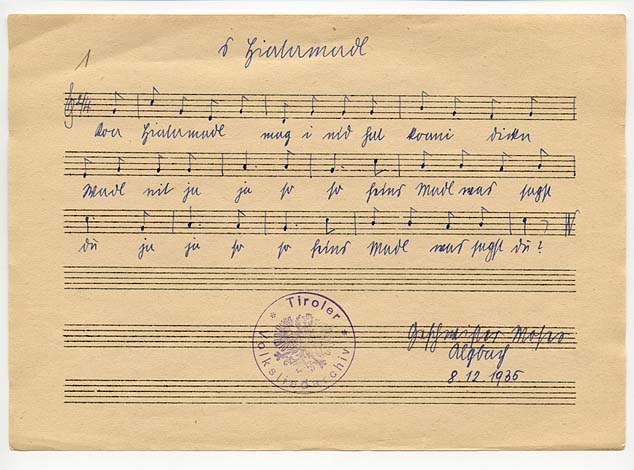 1
's Hiatamadl
4/4
Koa Hiatamadl mag i nid hat koani dickn
Wadl nit ja ja so so feins Madl was sagst
du ja ja so so feins Madl was sagst du?
* Tiroler * Volksliedarchiv
Geschwister Moser
Alpbach
8.12.1936